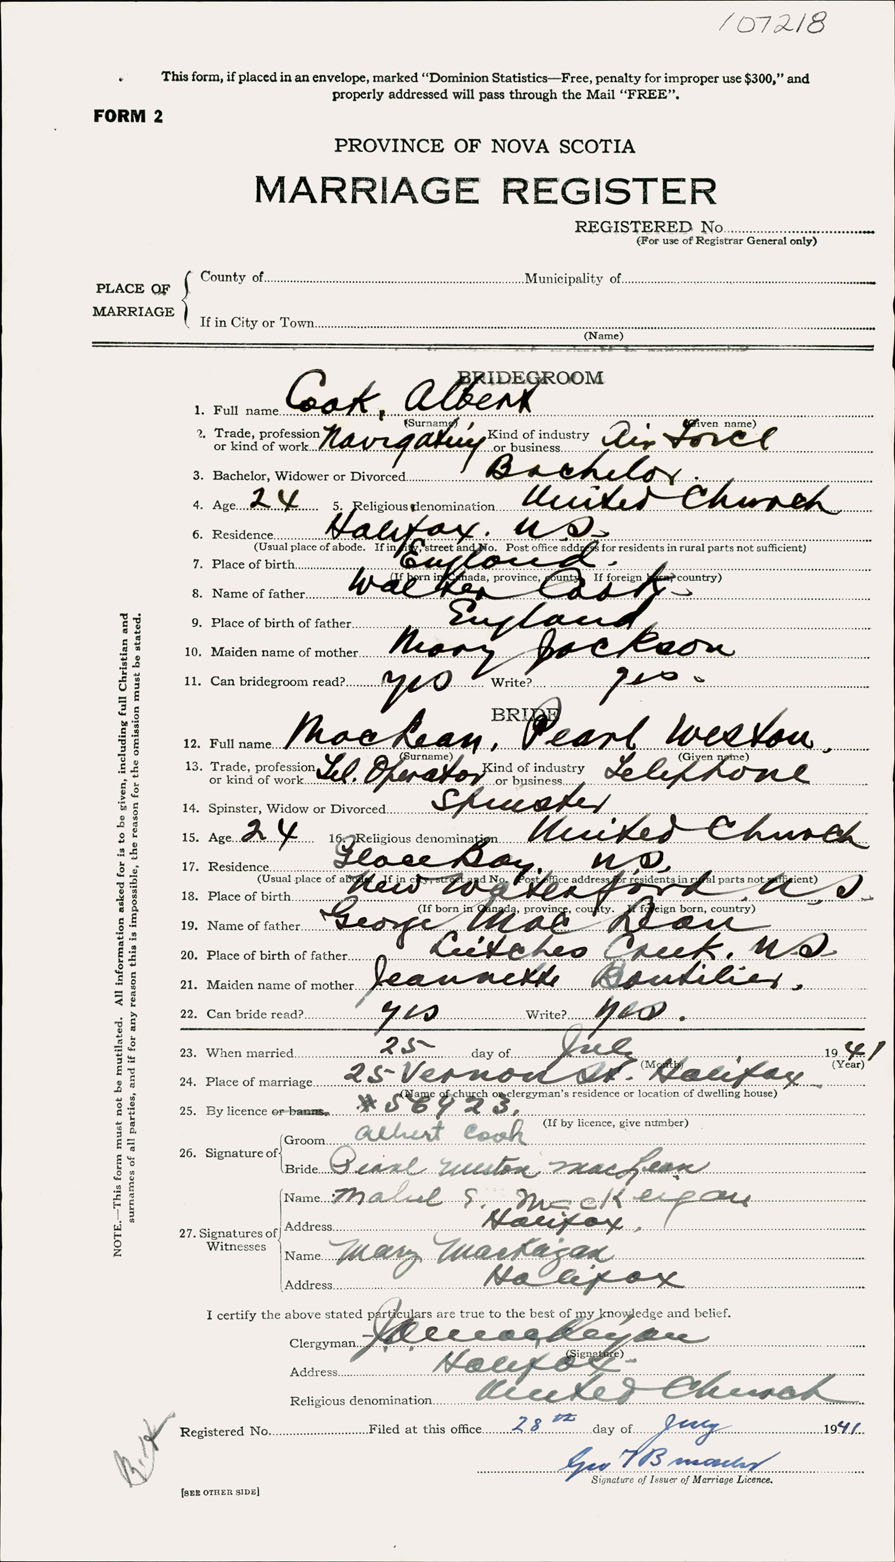 107218
This form, if placed in an envelope, marked "Dominion Statistics—Free, penalty for improper use $300," and
properly addressed will pass through the Mail "FREE".
FORM 2
PROVINCE OF NOVA SCOTIA
MARRIAGE REGISTER
REGISTERED No.
(For use of Registrar General only)
PLACE OF MARRIAGE
County of Municipality of
If in City or Town
(Name)
BRIDEGROOM
1. Full name Cook, Albert
(Surname) (Given name)
2. Trade, profession or kind of work Navigating Kind of industry or business Air Force
3. Bachelor, Widower or Divorced Bachelor.
4. Age 24 5. Religious denomination United Church
6. Residence Halifax. N.S.
(Usual place of abode. If in city, street and No. Post office address for residents in rural parts not sufficient)
7. Place of birth England.
(If born in Canada, province, county. If foreign born, country)
8. Name of father Walter Cook
9. Place of birth of father England
10. Maiden name of mother Mary Jackson
11. Can bridegroom read? yes Write? yes.
BRIDE
12. Full name MacLean, Pearl Weston.
(Surname) (Given name)
13. Trade, profession or kind of work Tel. Operator Kind of industry or business Telephone
14. Spinster, Widow or Divorced Spinster
15. Age 24 16. Religious denomination United Church
17. Residence Glace Bay, N.S.
(Usual place of abode. If in city, street and No. Post office address for residents in rural parts not sufficient)
18. Place of birth New Waterford N S
(If born in Canada, province, county. If foreign born, country)
19. Name of father George MacLean
20. Place of birth of father Leitches Creek. N.S.
21. Maiden name of mother Jeannette Boutilier.
22. Can bride read? yes Write? yes.
23. When married 25 day of July 1941
(Month) (Year)
24. Place of marriage 25 Vernon St. Halifax
(Name of church or clergyman's residence or location of dwelling house)
25. By licence or banns. #56923.
(If by licence, give number)
26. Signature of
Groom Albert Cook
Bride Pearl Weston MacLean
27. Signatures of Witnesses
Name Mabel S. MacKeigan
Address Halifax.
Name Mary
Address Halifax
I certify the above stated particulars are true to the best of my knowledge and belief.
Clergyman
(Signature)
Address Halifax
Religious denomination United Church
Registered No. Filed at this office 28th day of July 1941.
Geo
Signature of Issuer of Marriage Licence.
[SEE OTHER SIDE]
NOTE.—This form must not be mutilated. All information asked for is to be given, including full Christian and
surnames of all parties, and if for any reason this is impossible, the reason for the omission must be stated.